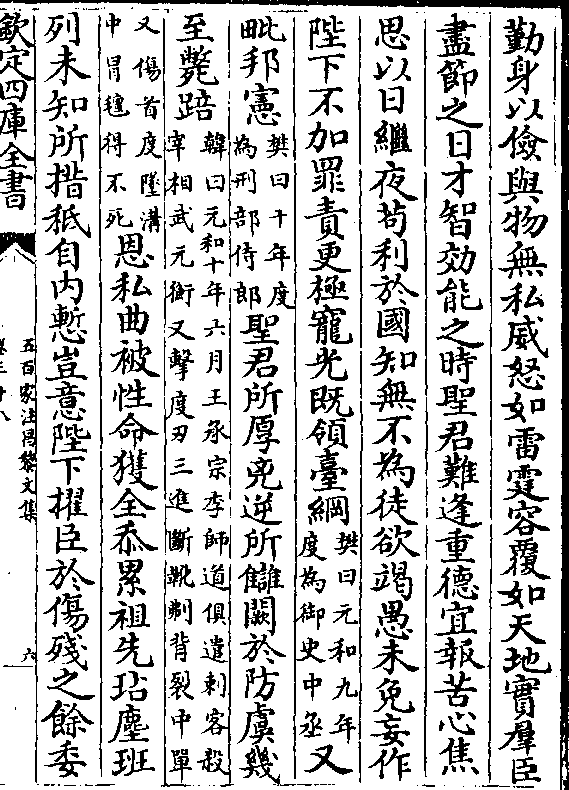 勤身以儉與物無私威怒如雷霆容覆如天地實羣臣
盡節之日才智効能之時聖君難逢重德宜報苦心焦
思以日繼夜苟利於國知無不為徒欲竭愚未免妄作
陛下不加罪責更極寵光既領臺綱
樊曰元和九年
度為御史中丞
又
毗邦憲
樊曰十年度
為刑部侍郎
聖君所厚兇逆所讎闕於防虞幾
至斃踣
韓曰元和十年六月王承宗李師道俱遣刺客殺
宰相武元衡又擊度刃三進斷靴剃背裂中單
又傷首度墜溝
中冒氊得不死
恩私曲被性命獲全忝累祖先玷塵班
列未知所措秪自内慙豈意陛下擢臣於傷殘之餘委
欽定四庫全書
五百家注昌黎文集
卷三十八
六